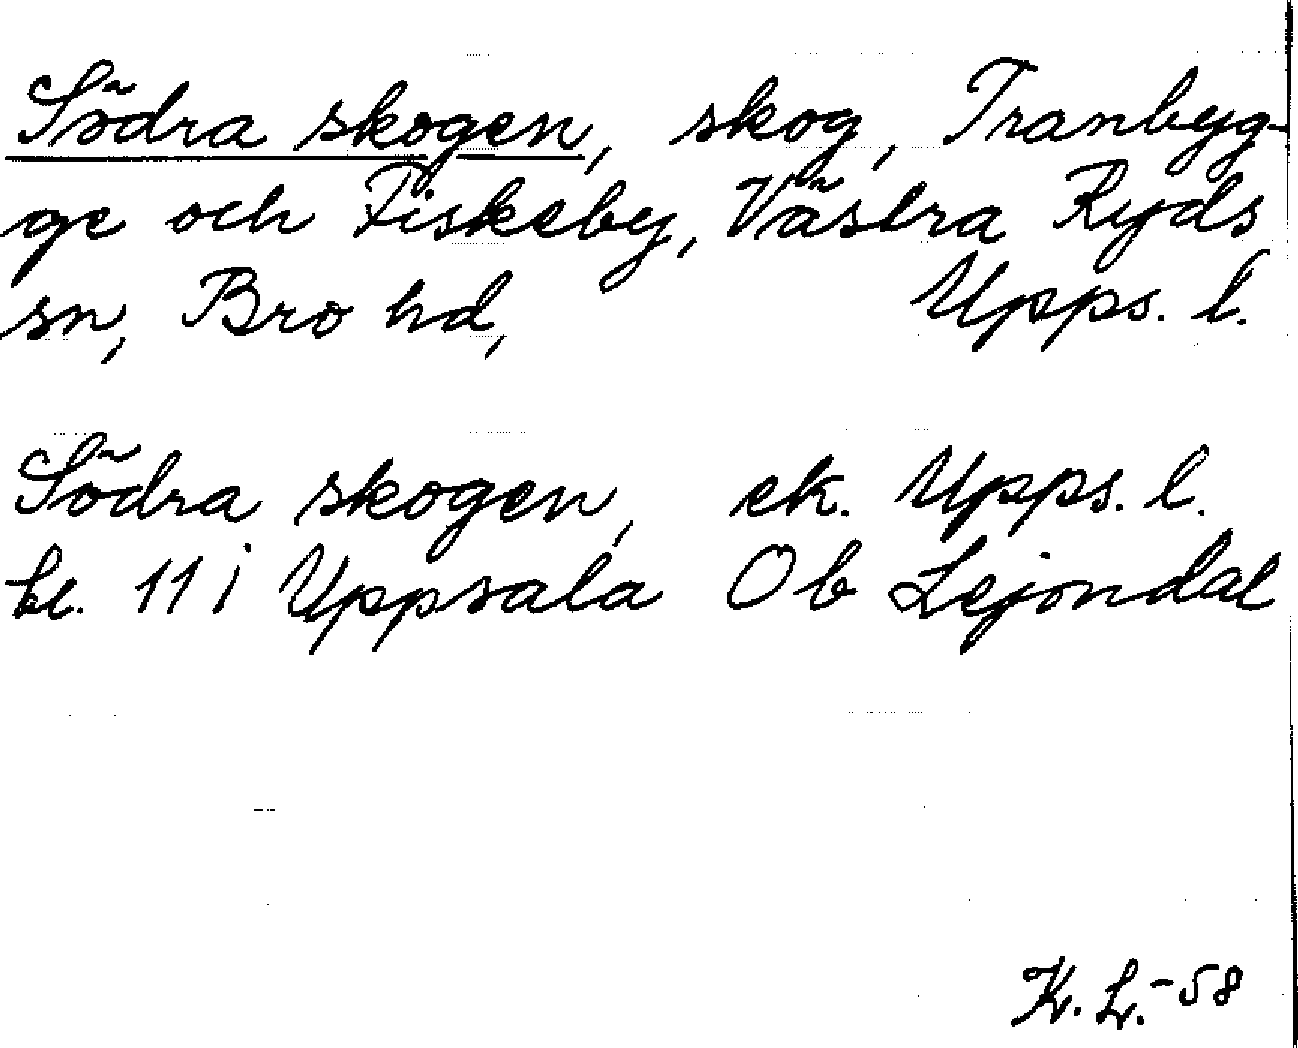 Södra skogen, skog, Tranbyg-
ge och Fiskeby, Västra Ryds
sn, Bro hd, Upps. l.
Södra skogen, ek. Upps. l.
kl. 11 i Uppsala Ob Lejondal
K. L. -58